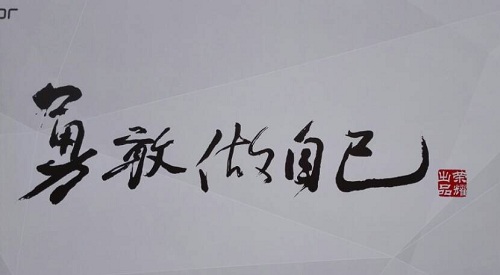 or
勇敢做自己
荣耀
出品